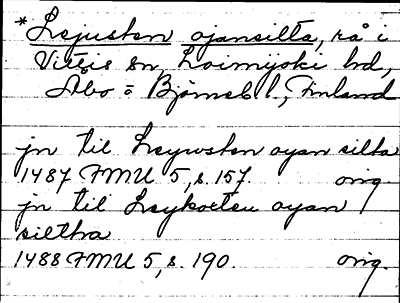 *Lsjusten ojansilta, rå i
Vittis sn, Loimijoki hd,
Åbo = Björneb l., Finland
jn til Lsywsten oyan silta
1487 FMU 5, s. 157. orig.
jn til Lsykoetsu oyan
siltha
1488 FMU 5, s. 190. orig.